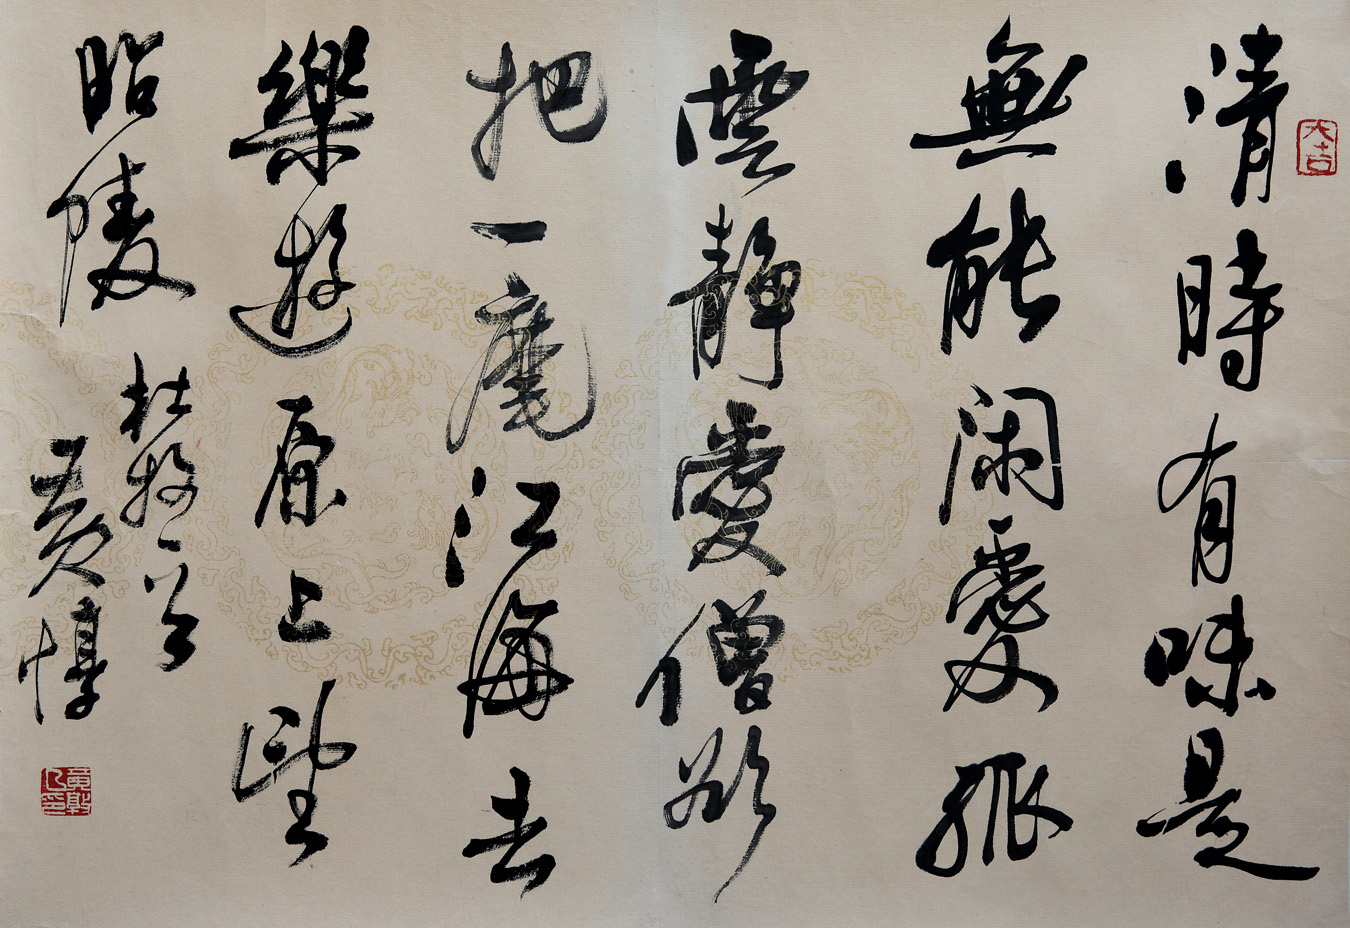 大吉
清時有味是
無能闲愛孤
雲靜愛僧欲
把一麾江海去
樂遊原上望
昭陵
杜牧一首
黄惇